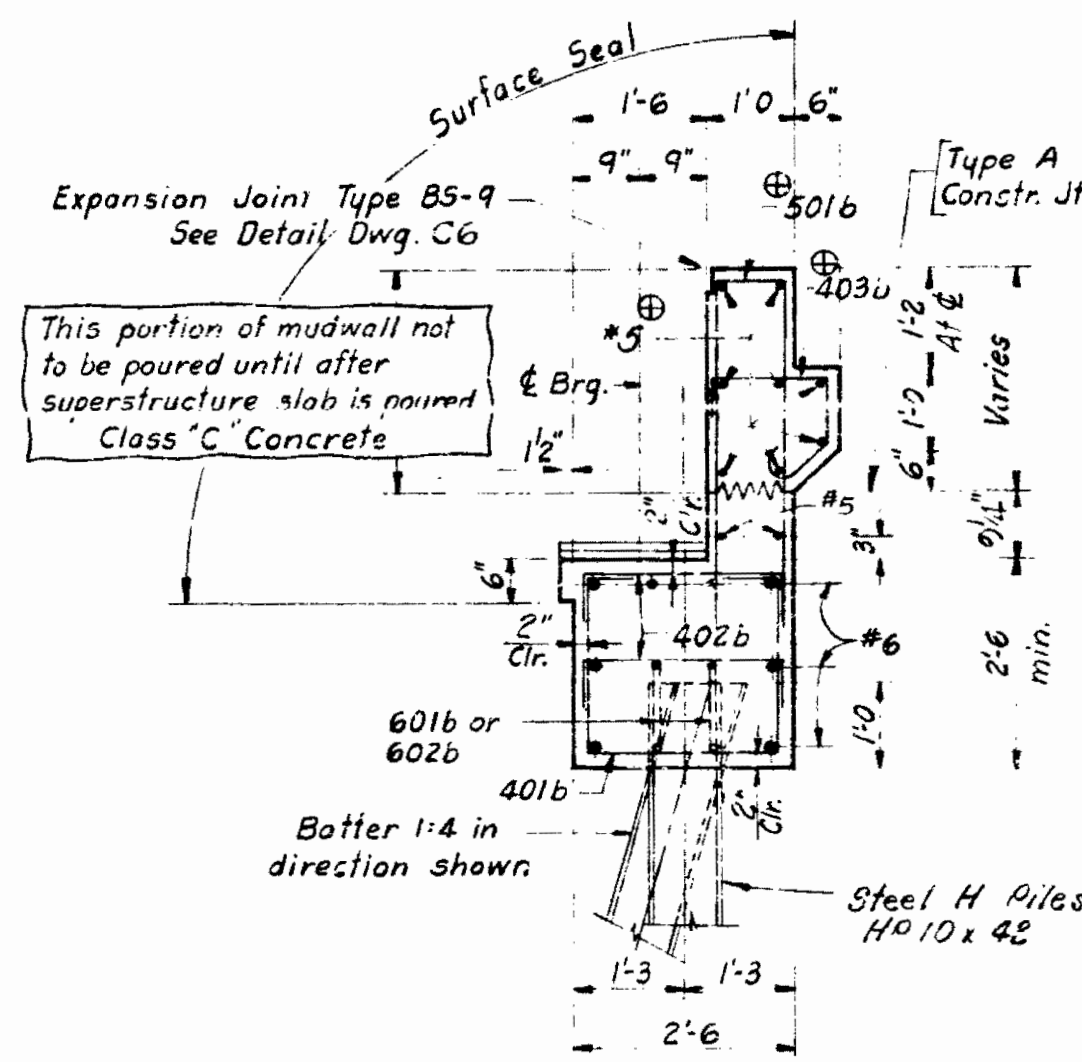 Surface Seal
1'-6
1'0
6"
9"
9"
Type A
Constr. Jt
Expansion Joint Type BS-9
See Detail Dwg. C6
501b
403b
This portion of mudwall not
to be poured until after
superstructure slab is poured
Class "C" Concrete
#5
1'-2
At ℄
Varies
℄ Brg.
1'-0
1½"
6"
2"
Cl'r.
#5
3"
9¼"
6"
2"
Clr.
402b
#6
2'-6
min.
601b or
602b
1'-0
401b
2"
Clr.
Batter 1:4 in
direction shown
Steel H Piles
HP 10 x 42
1'-3
1'-3
2'-6